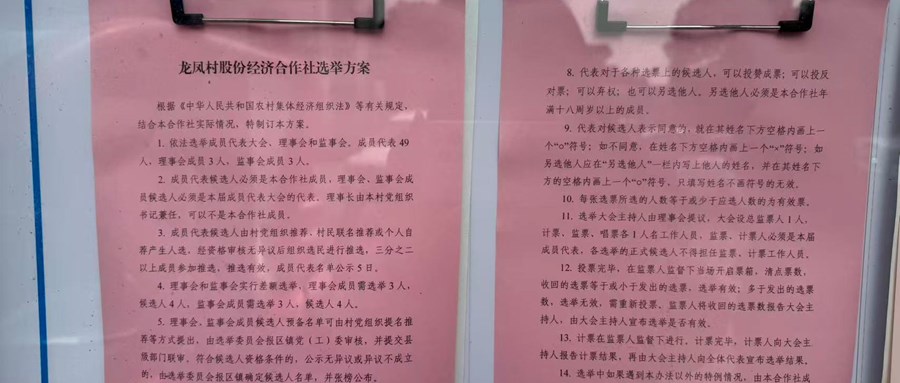 龙凤村股份经济合作社选举方案
根据《中华人民共和国农村集体经济组织法》等有关规定，
结合本合作社实际情况，特制订本方案。
1. 依法选举成员代表大会、理事会和监事会。成员代表 49
人，理事会成员 3 人，监事会成员 3 人。
2. 成员代表候选人必须是本合作社成员，理事会、监事会成
员候选人必须是本届成员代表大会的代表。理事长由本村党组织
书记兼任，可以不是本合作社成员。
3. 成员代表候选人由村党组织推荐、村民联名推荐或个人自
荐产生人选，经资格审核无异议后组织选民进行推选，三分之二
以上成员参加推选，推选有效。成员代表名单公示 5 日。
4. 理事会和监事会实行差额选举，理事会成员需选举 3 人，
候选人 4 人，监事会成员需选举 3 人，候选人 4 人。
5. 理事会、监事会成员候选人预备名单可由村党组织提名推
荐等方式提出，由选举委员会报区镇党（工）委审核，并提交县
级部门联审。符合候选人资格条件的，公示无异议或异议不成立
的，由选举委员会报区镇确定候选人名单，并张榜公布。
8. 代表对于各种选票上的候选人，可以投赞成票；可以投反
对票；可以弃权；也可以另选他人。另选他人必须是本合作社年
满十八周岁以上的成员。
9. 代表对候选人表示同意的，就在其姓名下方空格内画上一
个“○”符号；如不同意，在姓名下方空格内画上一个“×”符号；如
另选他人应在“另选他人”一栏内写上他人的姓名，并在其姓名下
方的空格内画上一个“○”符号，只填写姓名不画符号的无效。
10. 每张选票所选的人数等于或少于应选人数的为有效票。
11. 选举大会主持人由理事会提议，大会设总监票人 1 人，
计票、监票、唱票各 1 人名工作人员，监票、计票人必须是本届
成员代表，各选举的正式候选人不得担任监票、计票工作人员。
12. 投票完毕，在监票人监督下当场开启票箱，清点票数，
收回的选票等于或小于发出的选票，选举有效；多于发出的选票
数，选举无效，需重新投票。监票人将收回的选票数报告大会主
持人，由大会主持人宣布选举是否有效。
13. 计票在监票人监督下进行。计票完毕，计票人向大会主
持人报告计票结果，再由大会主持人向全体代表宣布选举结果。
14. 选举中如果遇到本办法以外的特例情况，由本合作社成